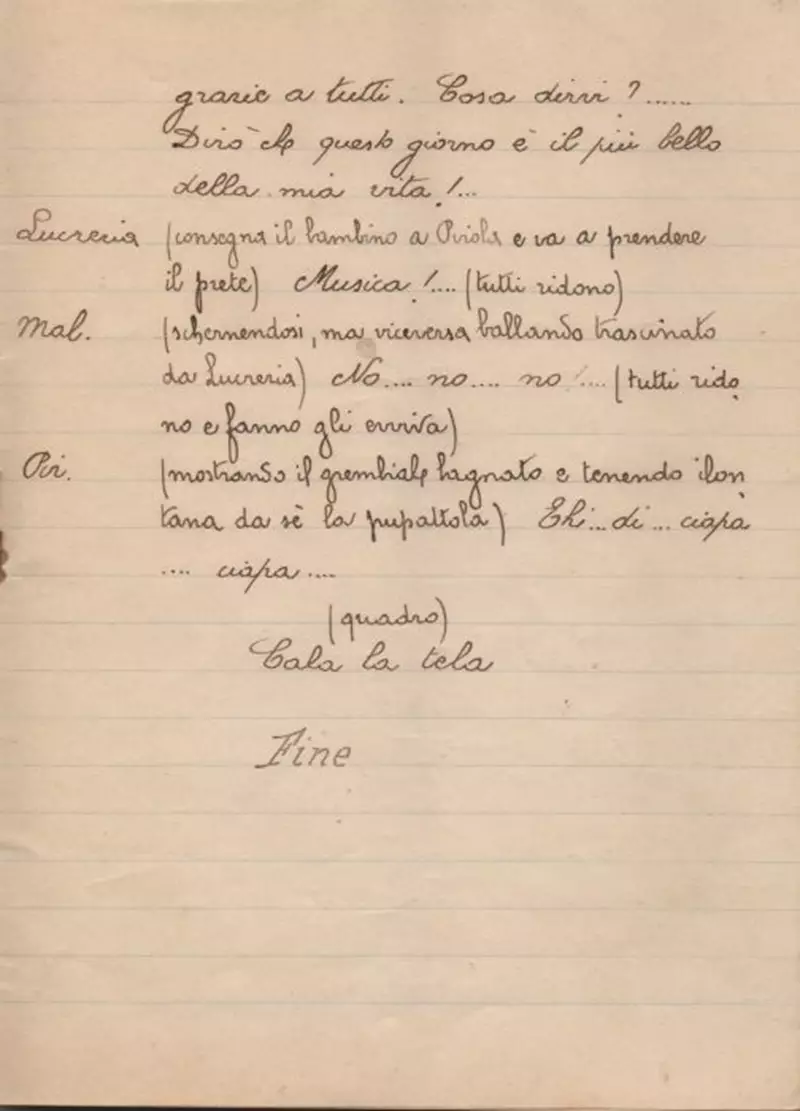 grazie a tutti. Cosa dirvi ? ......
Dirò che questo giorno è il più bello
della mia vita !...
Lucrezia (consegna il bambino a Piriola e va a prendere
il prete) Musica !.... (tutti ridono)
Mal. (schernendosi, ma viceversa ballando trascinato
da Lucrezia) No.... no.... no !.... (tutti rido
no e fanno gli evviva)
Pir. (mostrando il grembiale bagnato e tenendo ilon
tana da sè la pupattola) Ehi... di... ciapa
.... ciapa ....
(quadro)
Cala la tela
Fine